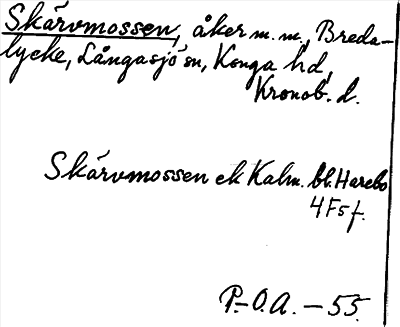 Skärvmossen, åker m.m., Breda-
lycke, Långasjö sn, Konga hd,
Kronob. l.
Skärvmossen ek Kalm. bl. Harebo
4F5f.
P.-O.A. - 55.